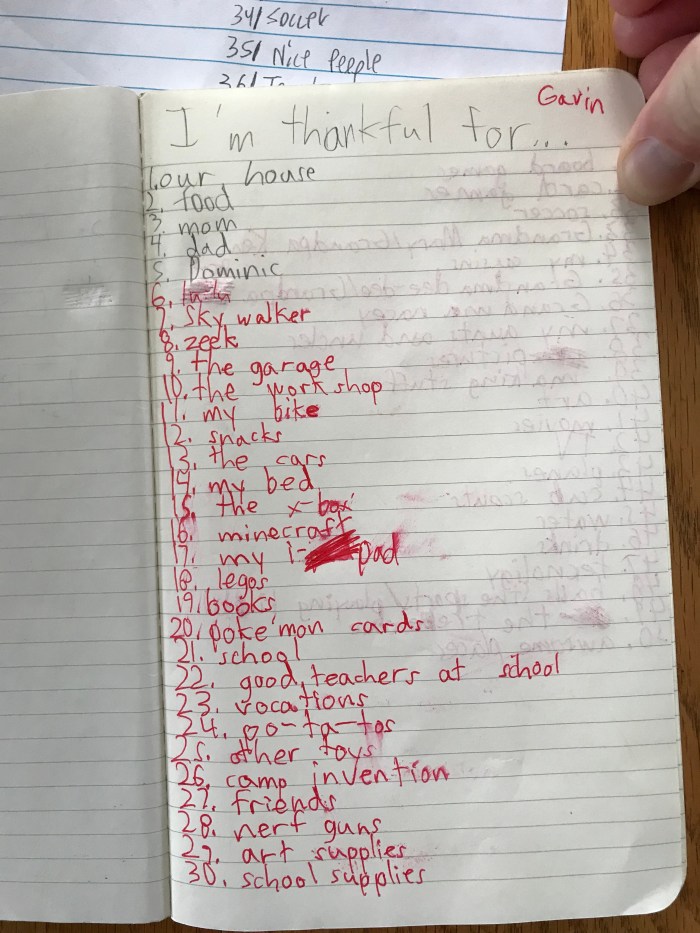 34) Soccer
35) Nice People
Gavin
I'm thankful for...
1. our house
2. food
3. mom
4. dad
5. Dominic
6. lu-lu
7. sky walker
8. zeek
9. the garage
10. the work shop
11. my bike
12. snacks
13. the cars
14. my bed
15. the x-box
16. minecraft
17. my i-pad
18. legos
19. books
20. poke'mon cards
21. school
22. good teachers at school
23. vocations
24. po-ta-tos
25. other toys
26. camp invention
27. friends
28. nerf guns
29. art supplies
30. school supplies